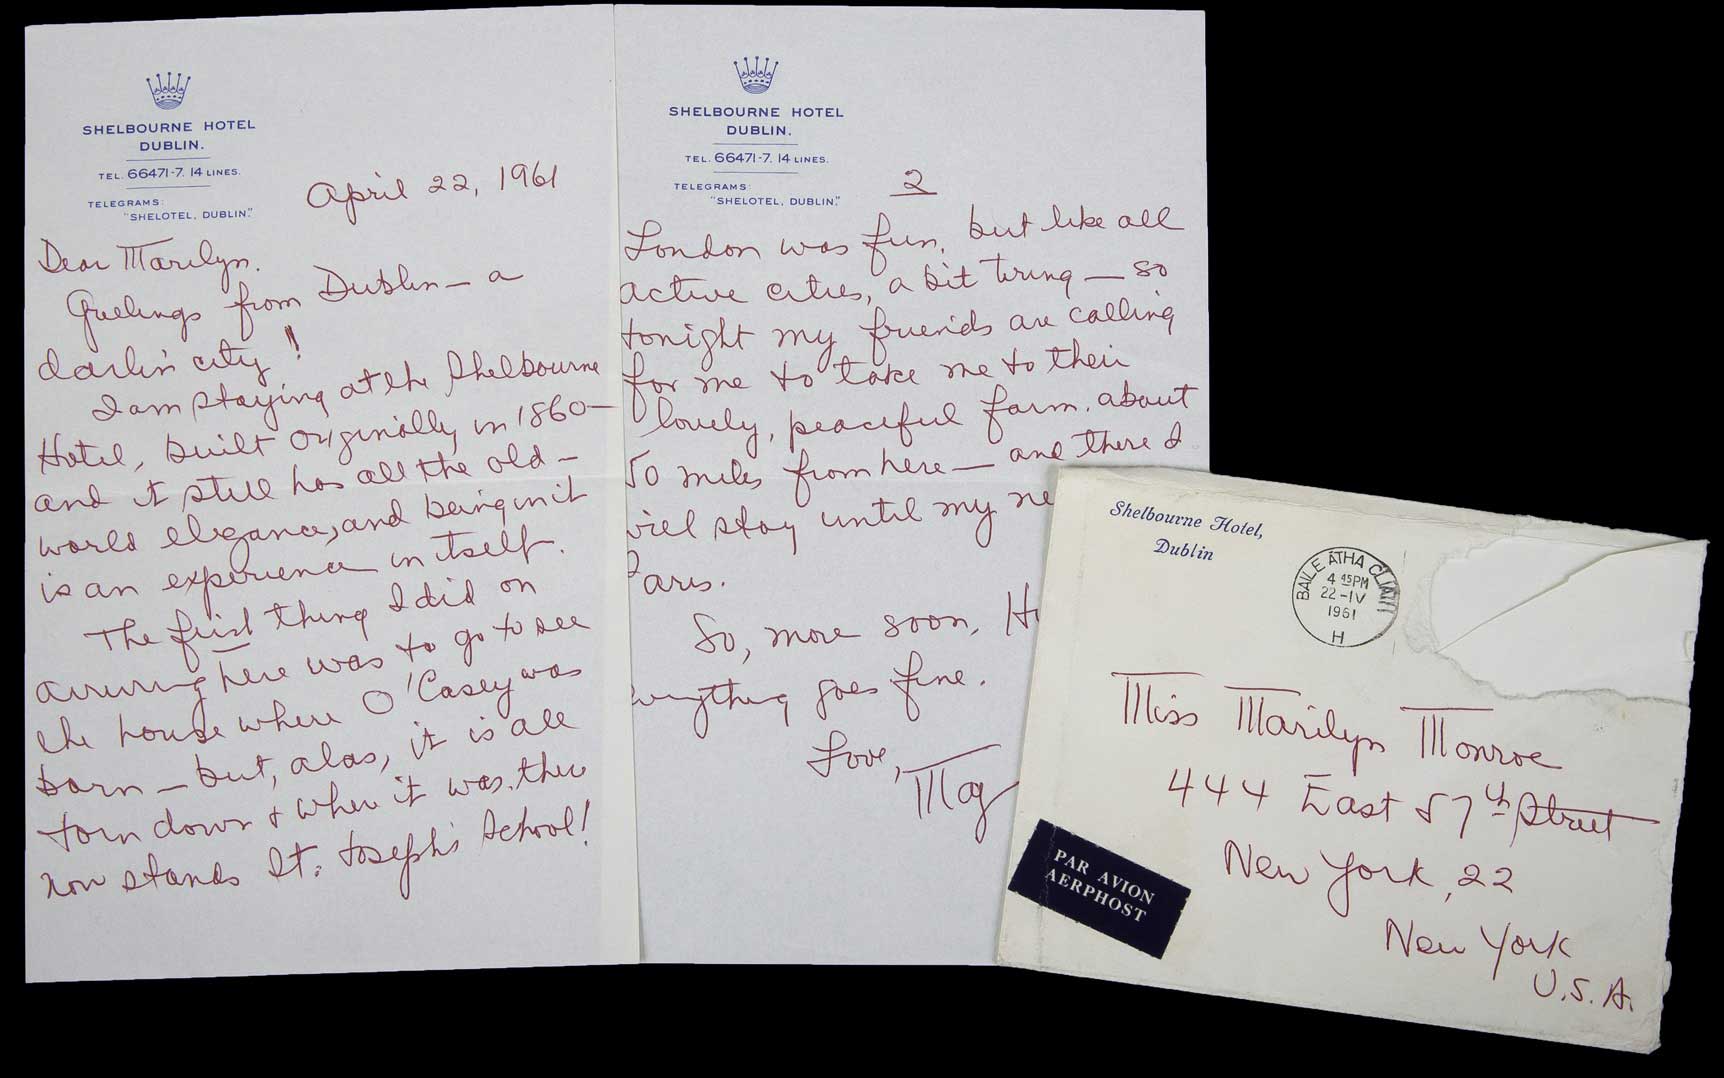 SHELBOURNE HOTEL
DUBLIN.
TEL. 66471-7. 14 LINES.
TELEGRAMS:
"SHELOTEL, DUBLIN."
April 22, 1961
Dear Marilyn,
Greetings from Dublin — a
darlin' city!
I am staying at the Shelbourne
Hotel, built originally in 1860 —
and it still has all the old-
world elegance, and being in it
is an experience in itself.
The first thing I did on
arriving here was to go to see
the house where O'Casey was
born — but, alas, it is all
torn down & where it was, there
now stands St. Joseph's School!
SHELBOURNE HOTEL
DUBLIN.
TEL. 66471-7. 14 LINES.
TELEGRAMS:
"SHELOTEL, DUBLIN."
2
London was fun, but like all
active cities, a bit tiring — so
tonight my friends are calling
for me to take me to their
lovely, peaceful farm, about
50 miles from here — and there I
will stay until my
Paris.
So, more soon,
everything goes fine.
Love,
Shelbourne Hotel,
Dublin
BAILE ÁTHA CLIATH
4 45PM
22-IV
1961
H
Miss Marilyn Monroe
444 East 57th Street
New York, 22
New York
U.S.A.
PAR AVION
AERPHOST